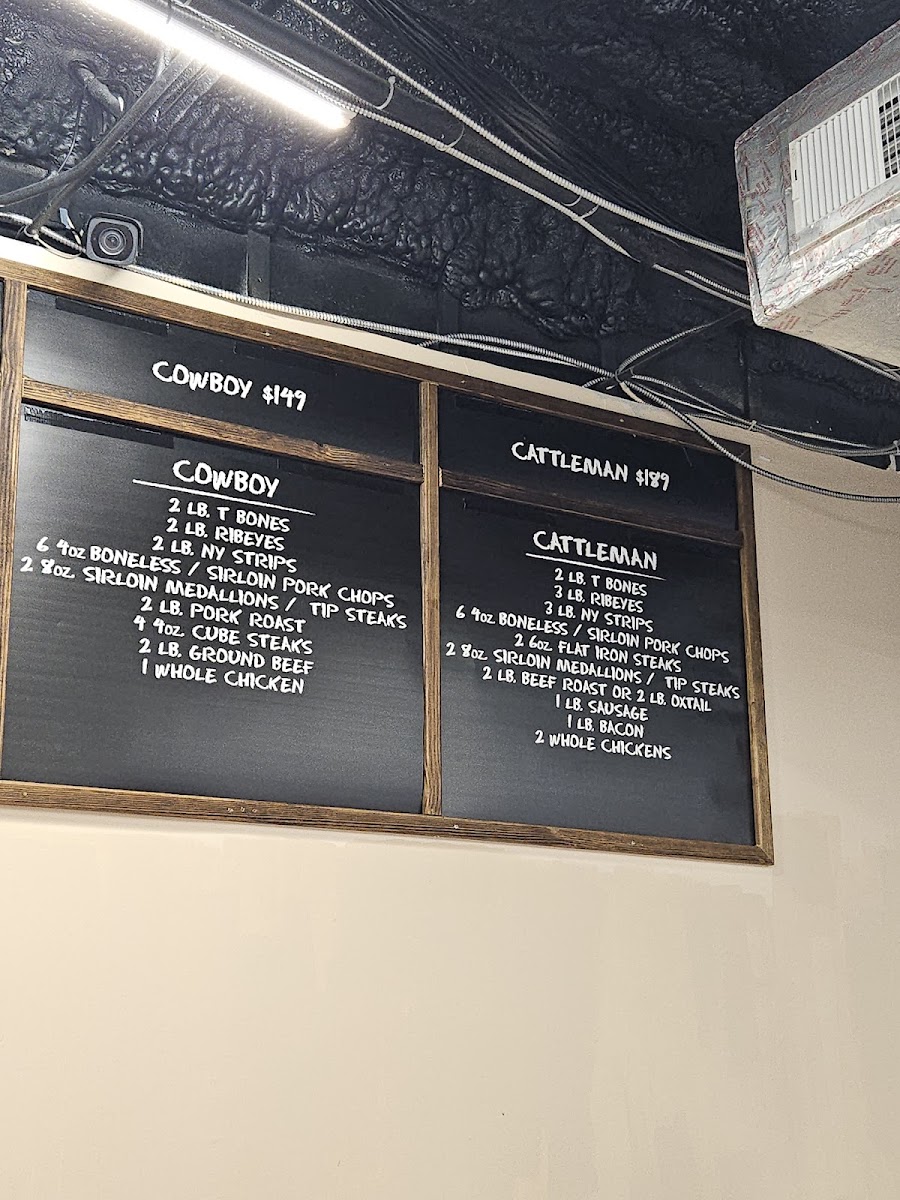 COWBOY $149
COWBOY
2 LB. T BONES
2 LB. RIBEYES
2 LB. NY STRIPS
6 4oz BONELESS / SIRLOIN PORK CHOPS
2 8oz. SIRLOIN MEDALLIONS / TIP STEAKS
2 LB. PORK ROAST
4 4oz. CUBE STEAKS
2 LB. GROUND BEEF
1 WHOLE CHICKEN
CATTLEMAN $189
CATTLEMAN
2 LB. T BONES
3 LB. RIBEYES
3 LB. NY STRIPS
6 4oz BONELESS / SIRLOIN PORK CHOPS
2 6oz. FLAT IRON STEAKS
2 8oz. SIRLOIN MEDALLIONS / TIP STEAKS
2 LB. BEEF ROAST OR 2 LB. OXTAIL
1 LB. SAUSAGE
1 LB. BACON
2 WHOLE CHICKENS